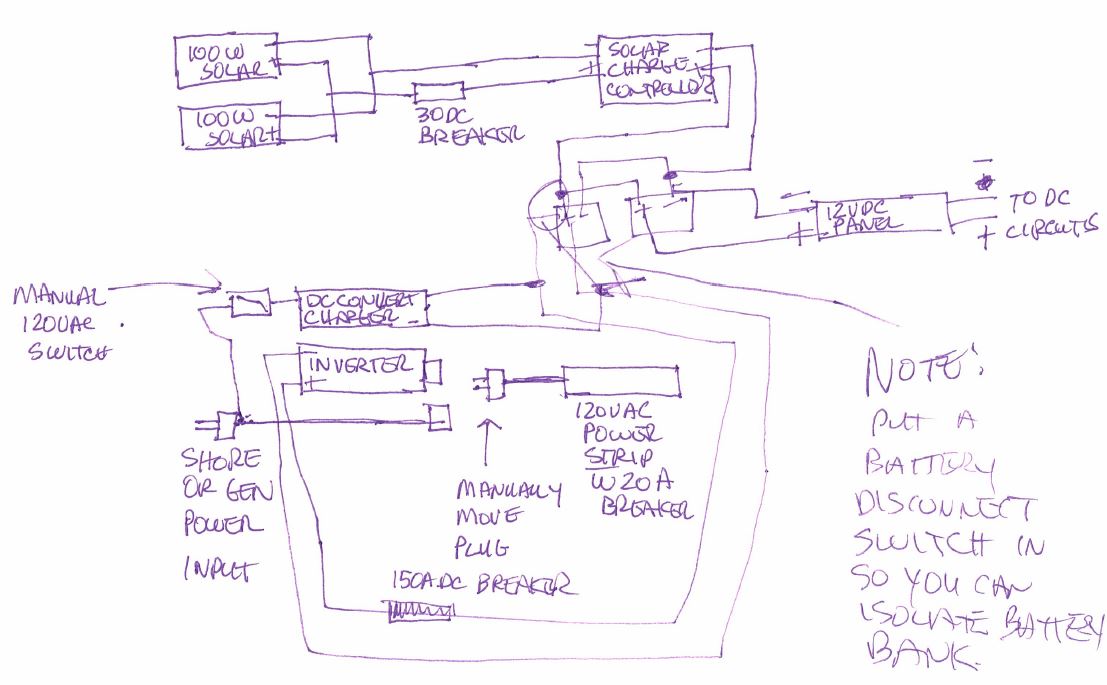 100W
SOLAR
100W
SOLAR+
30DC
BREAKER
-
+
SOLAR
CHARGE +
CONTROLLER
+ -
+ -
-
+
12VDC
PANEL
-
+
TO DC
CIRCUITS
MANUAL
120VAC
SWITCH
DC CONVERT
CHARGER -
INVERTER
+ -
SHORE
OR GEN
POWER
INPUT
MANUALLY
MOVE
PLUG
120VAC
POWER
STRIP
W 20A
BREAKER
150A.DC BREAKER
NOTE:
PUT A
BATTERY
DISCONNECT
SWITCH IN
SO YOU CAN
ISOLATE BATTERY
BANK.